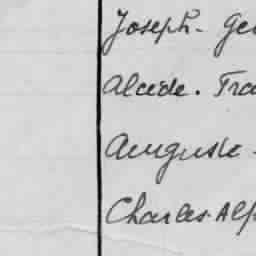 Joseph - Geo
Alcide. Fra
Auguste -
Charles Alp